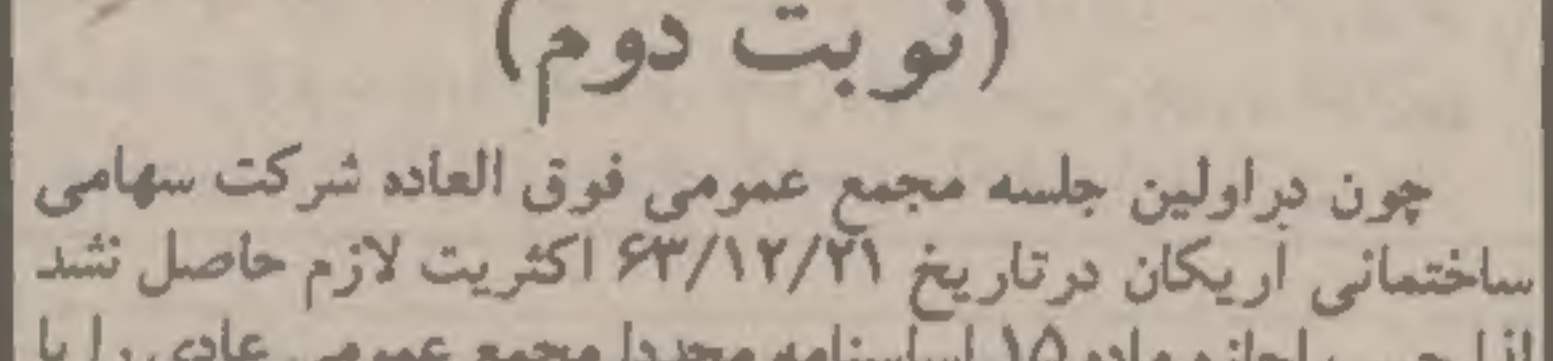 (نوبت دوم)
چون در اولین جلسه مجمع عمومی فوق العاده شرکت سهامی
ساختمانی آریکان در تاریخ ۶۳/۱۲/۲۱ اکثریت لازم حاصل نشد
لذا حسب اجازه ماده ۱۵ اساسنامه مجددا مجمع عمومی عادی را با